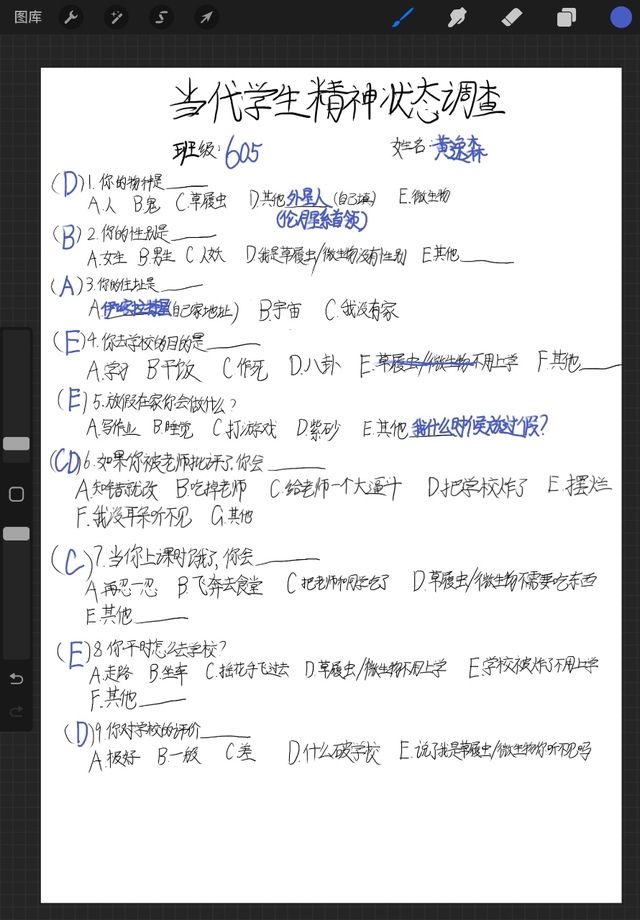 图库
当代学生精神状态调查
班级: 605 姓名: 黄逸森
(D) 1. 你的物种是____
A.人 B.鬼 C.草履虫 D.其他 外星人 (自己填) E.微生物
(伦玥星系首领)
(B) 2. 你的性别是____
A.女生 B.男生 C.人妖 D.我是草履虫/微生物没有性别 E.其他____
(A) 3. 你的住址是____
A. (自己家地址) B.宇宙 C.我没有家
(E) 4. 你去学校的目的是____
A.学习 B.干饭 C.作死 D.八卦 E.草履虫/微生物不用上学 F.其他____
(E) 5. 放假在家你会做什么?
A.写作业 B.睡觉 C.打游戏 D.紫砂 E.其他 我什么时候放过假?
(CD) 6. 如果你被老师批评了,你会____
A.知错就改 B.吃掉老师 C.给老师一个大逼斗 D.把学校炸了 E.摆烂
F.我没耳朵听不见 G.其他
(C) 7. 当你上课时饿了,你会____
A.再忍一忍 B.飞奔去食堂 C.把老师和同学吃了 D.草履虫/微生物不需要吃东西
E.其他____
(E) 8 你平时怎么去学校?
A.走路 B.坐车 C.摇花手飞过去 D.草履虫/微生物不用上学 E.学校被炸了不用上学
F.其他____
(D) 9. 你对学校的评价____
A.极好 B.一般 C.差 D.什么破学校 E.说了我是草履虫/微生物你听不见吗